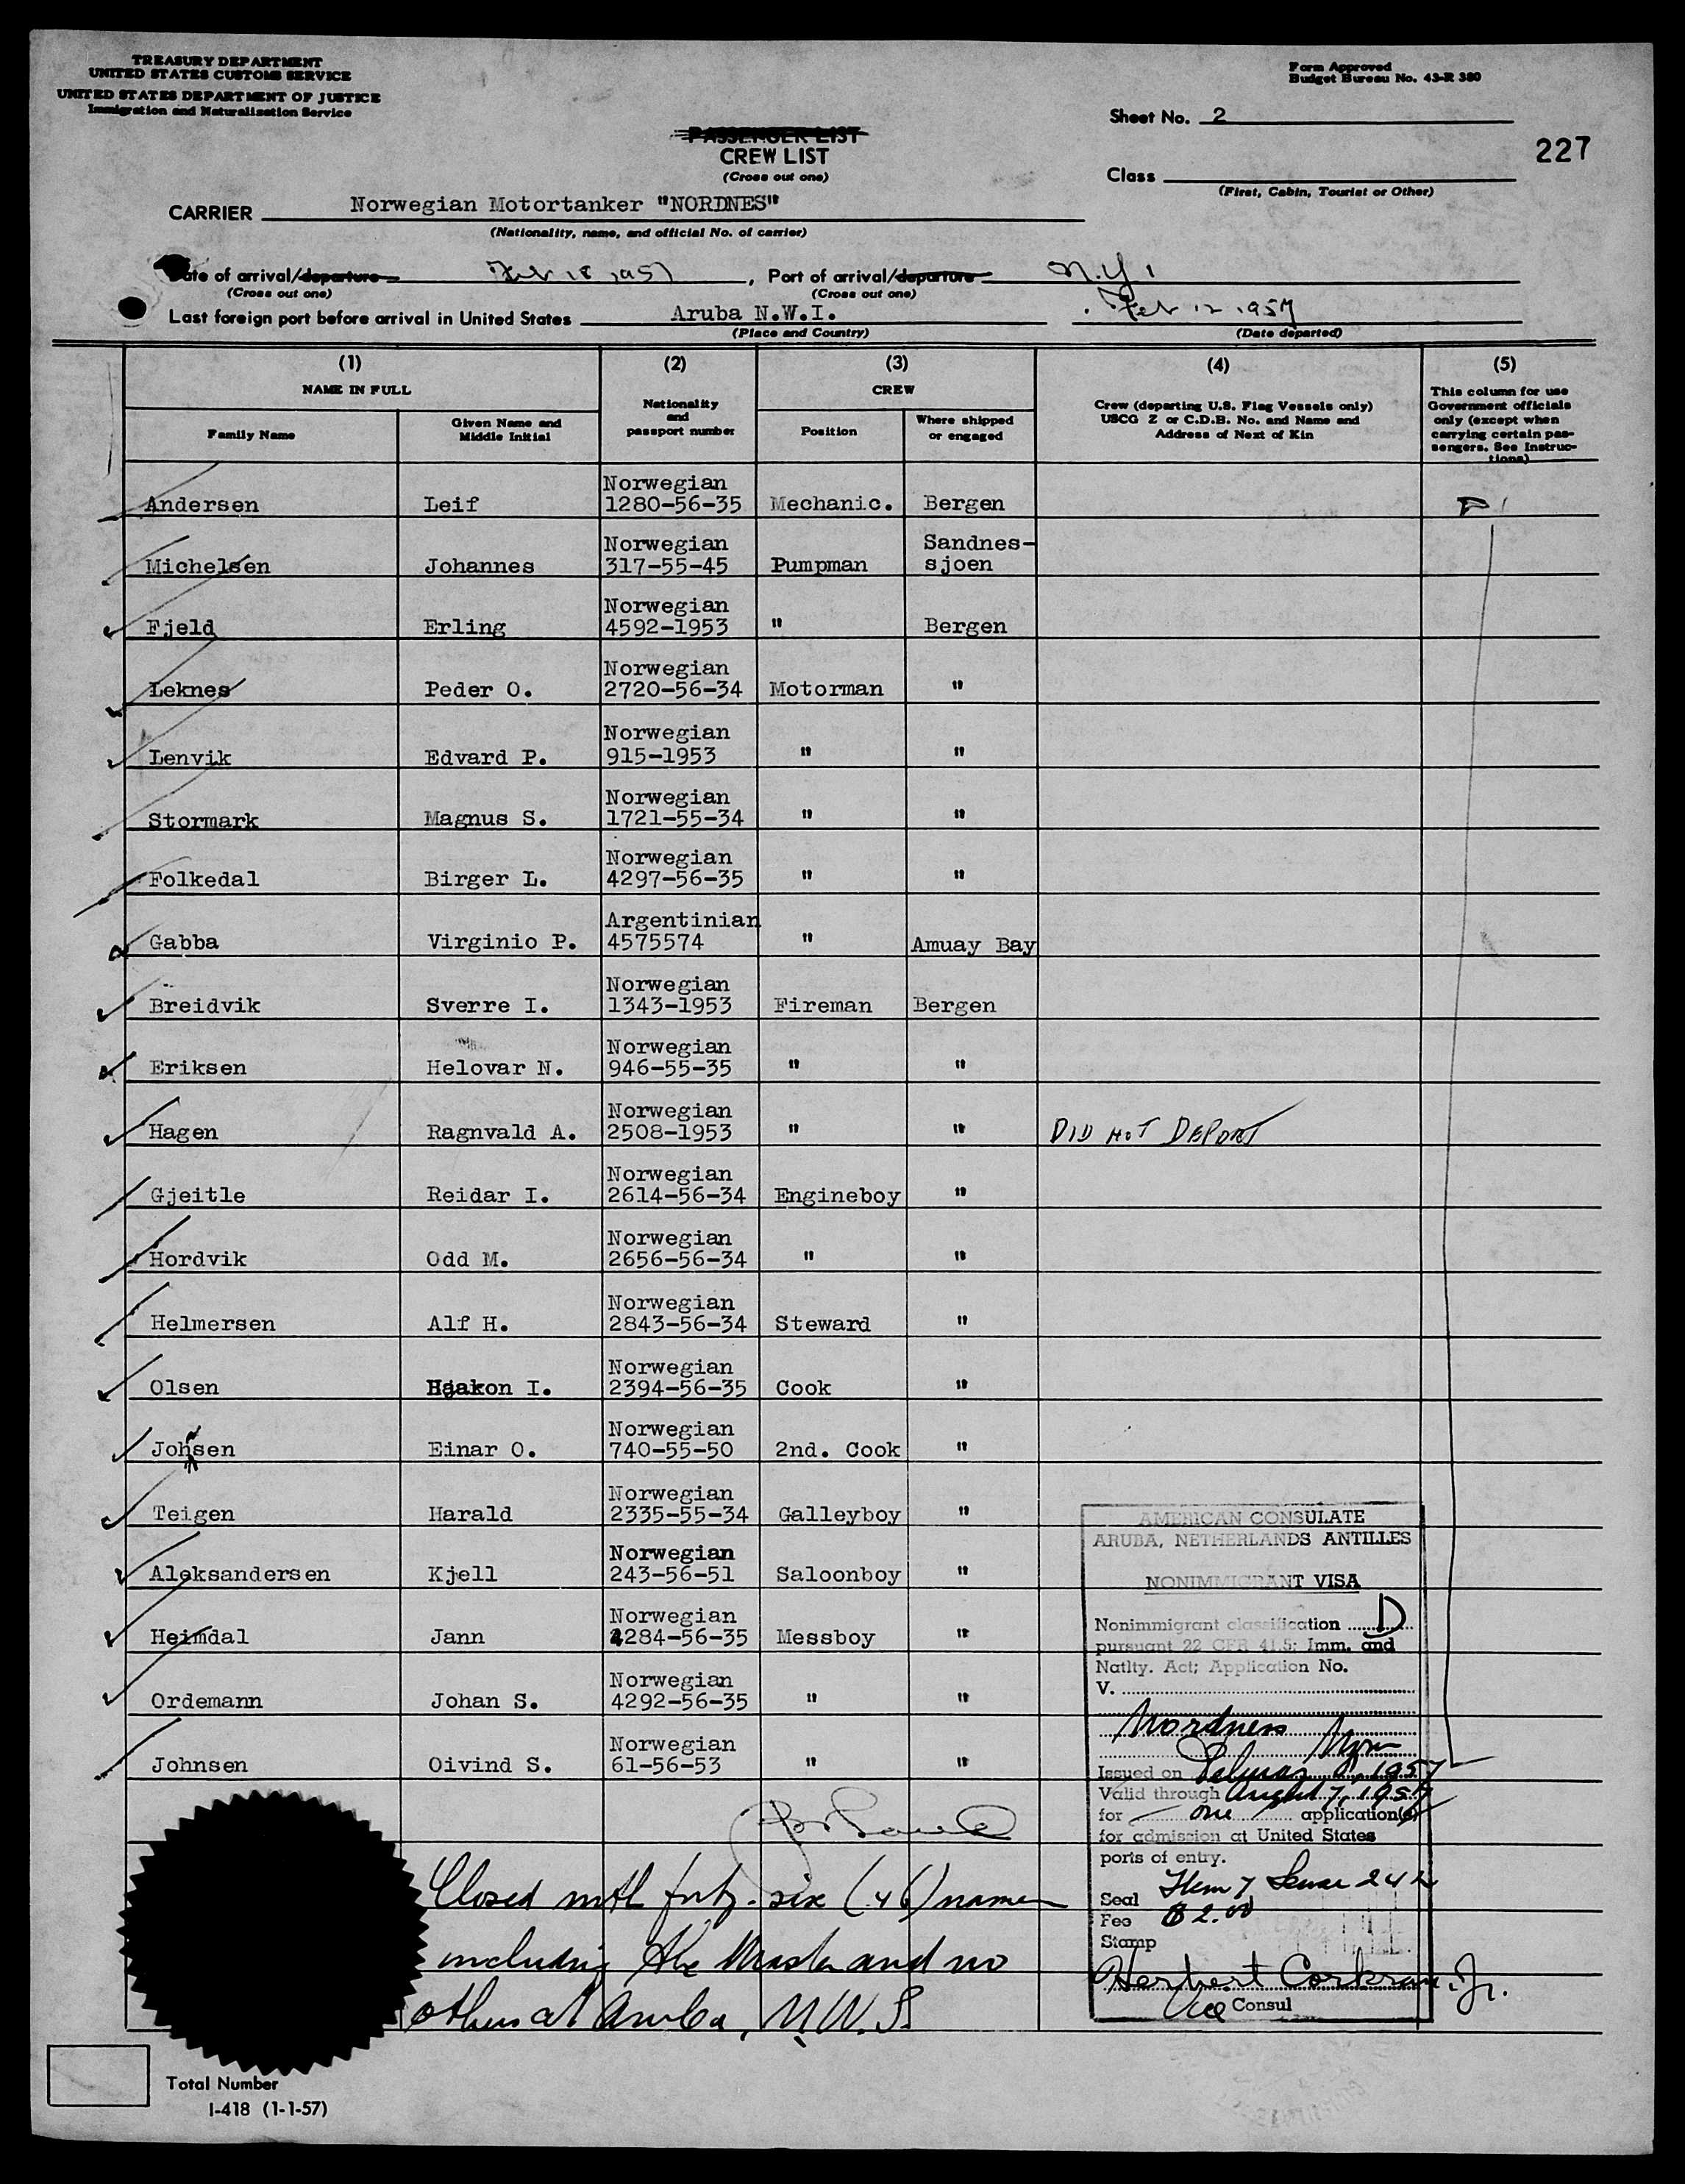 TREASURY DEPARTMENT
UNITED STATES CUSTOMS SERVICE
UNITED STATES DEPARTMENT OF JUSTICE
Immigration and Naturalization Service
Form Approved
Budget Bureau No. 43-R 380
Sheet No. 2
227
PASSENGER LIST
CREW LIST
(Cross out one)
Class
(First, Cabin, Tourist or Other)
CARRIER Norwegian Motortanker "NORDNES"
(Nationality, name, and official No. of carrier)
Date of arrival/departure Feb 18 1957, Port of arrival/departure N.Y.
(Cross out one) (Cross out one)
Last foreign port before arrival in United States Aruba N.W.I. Feb 12 1957
(Place and Country) (Date departed)
(1) (2) (3) (4) (5)
NAME IN FULL
Family Name
Given Name and Middle Initial
Nationality and passport number
CREW
Position
Where shipped or engaged
Crew (departing U.S. Flag Vessels only)
USCG Z or C.D.B. No. and Name and
Address of Next of Kin
This column for use
Government officials
only (except when
carrying certain pas-
sengers. See Instruc-
tions)
Andersen Leif Norwegian 1280-56-35 Mechanic. Bergen
Michelsen Johannes Norwegian 317-55-45 Pumpman Sandnes-sjoen
Fjeld Erling Norwegian 4592-1953 " Bergen
Leknes Peder O. Norwegian 2720-56-34 Motorman "
Lenvik Edvard P. Norwegian 915-1953 " "
Stormark Magnus S. Norwegian 1721-55-34 " "
Folkedal Birger L. Norwegian 4297-56-35 " "
Gabba Virginio P. Argentinian 4575574 " Amuay Bay
Breidvik Sverre I. Norwegian 1343-1953 Fireman Bergen
Eriksen Helovar N. Norwegian 946-55-35 " "
Hagen Ragnvald A. Norwegian 2508-1953 " " DID NOT DEPART
Gjeitle Reidar I. Norwegian 2614-56-34 Engineboy "
Hordvik Odd M. Norwegian 2656-56-34 " "
Helmersen Alf H. Norwegian 2843-56-34 Steward "
Olsen Haakon I. Norwegian 2394-56-35 Cook "
Johsen Einar O. Norwegian 740-55-50 2nd. Cook "
Teigen Harald Norwegian 2335-55-34 Galleyboy "
Aleksandersen Kjell Norwegian 243-56-51 Saloonboy "
Heimdal Jann Norwegian 4284-56-35 Messboy "
Ordemann Johan S. Norwegian 4292-56-35 " "
Johnsen Oivind S. Norwegian 61-56-53 " "
Closed with forty-six (46) names
including the Master and no
others at Aruba, N.W.I.
AMERICAN CONSULATE
ARUBA, NETHERLANDS ANTILLES
NONIMMIGRANT VISA
Nonimmigrant classification D
pursuant 22 CFR 41.5; Imm. and
Natlty. Act; Application No.
V.
Nordness
Issued on 1957
Valid through August 7, 1957
for one application(s)
for admission at United States
ports of entry.
Seal
Fee $2.00
Stamp
Herbert Corkran, Jr.
Vice Consul
Total Number
I-418 (1-1-57)